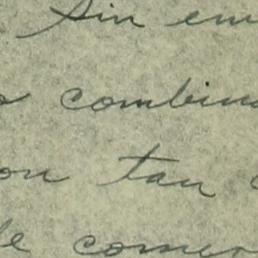 Sin em
combina
on tan
le comer